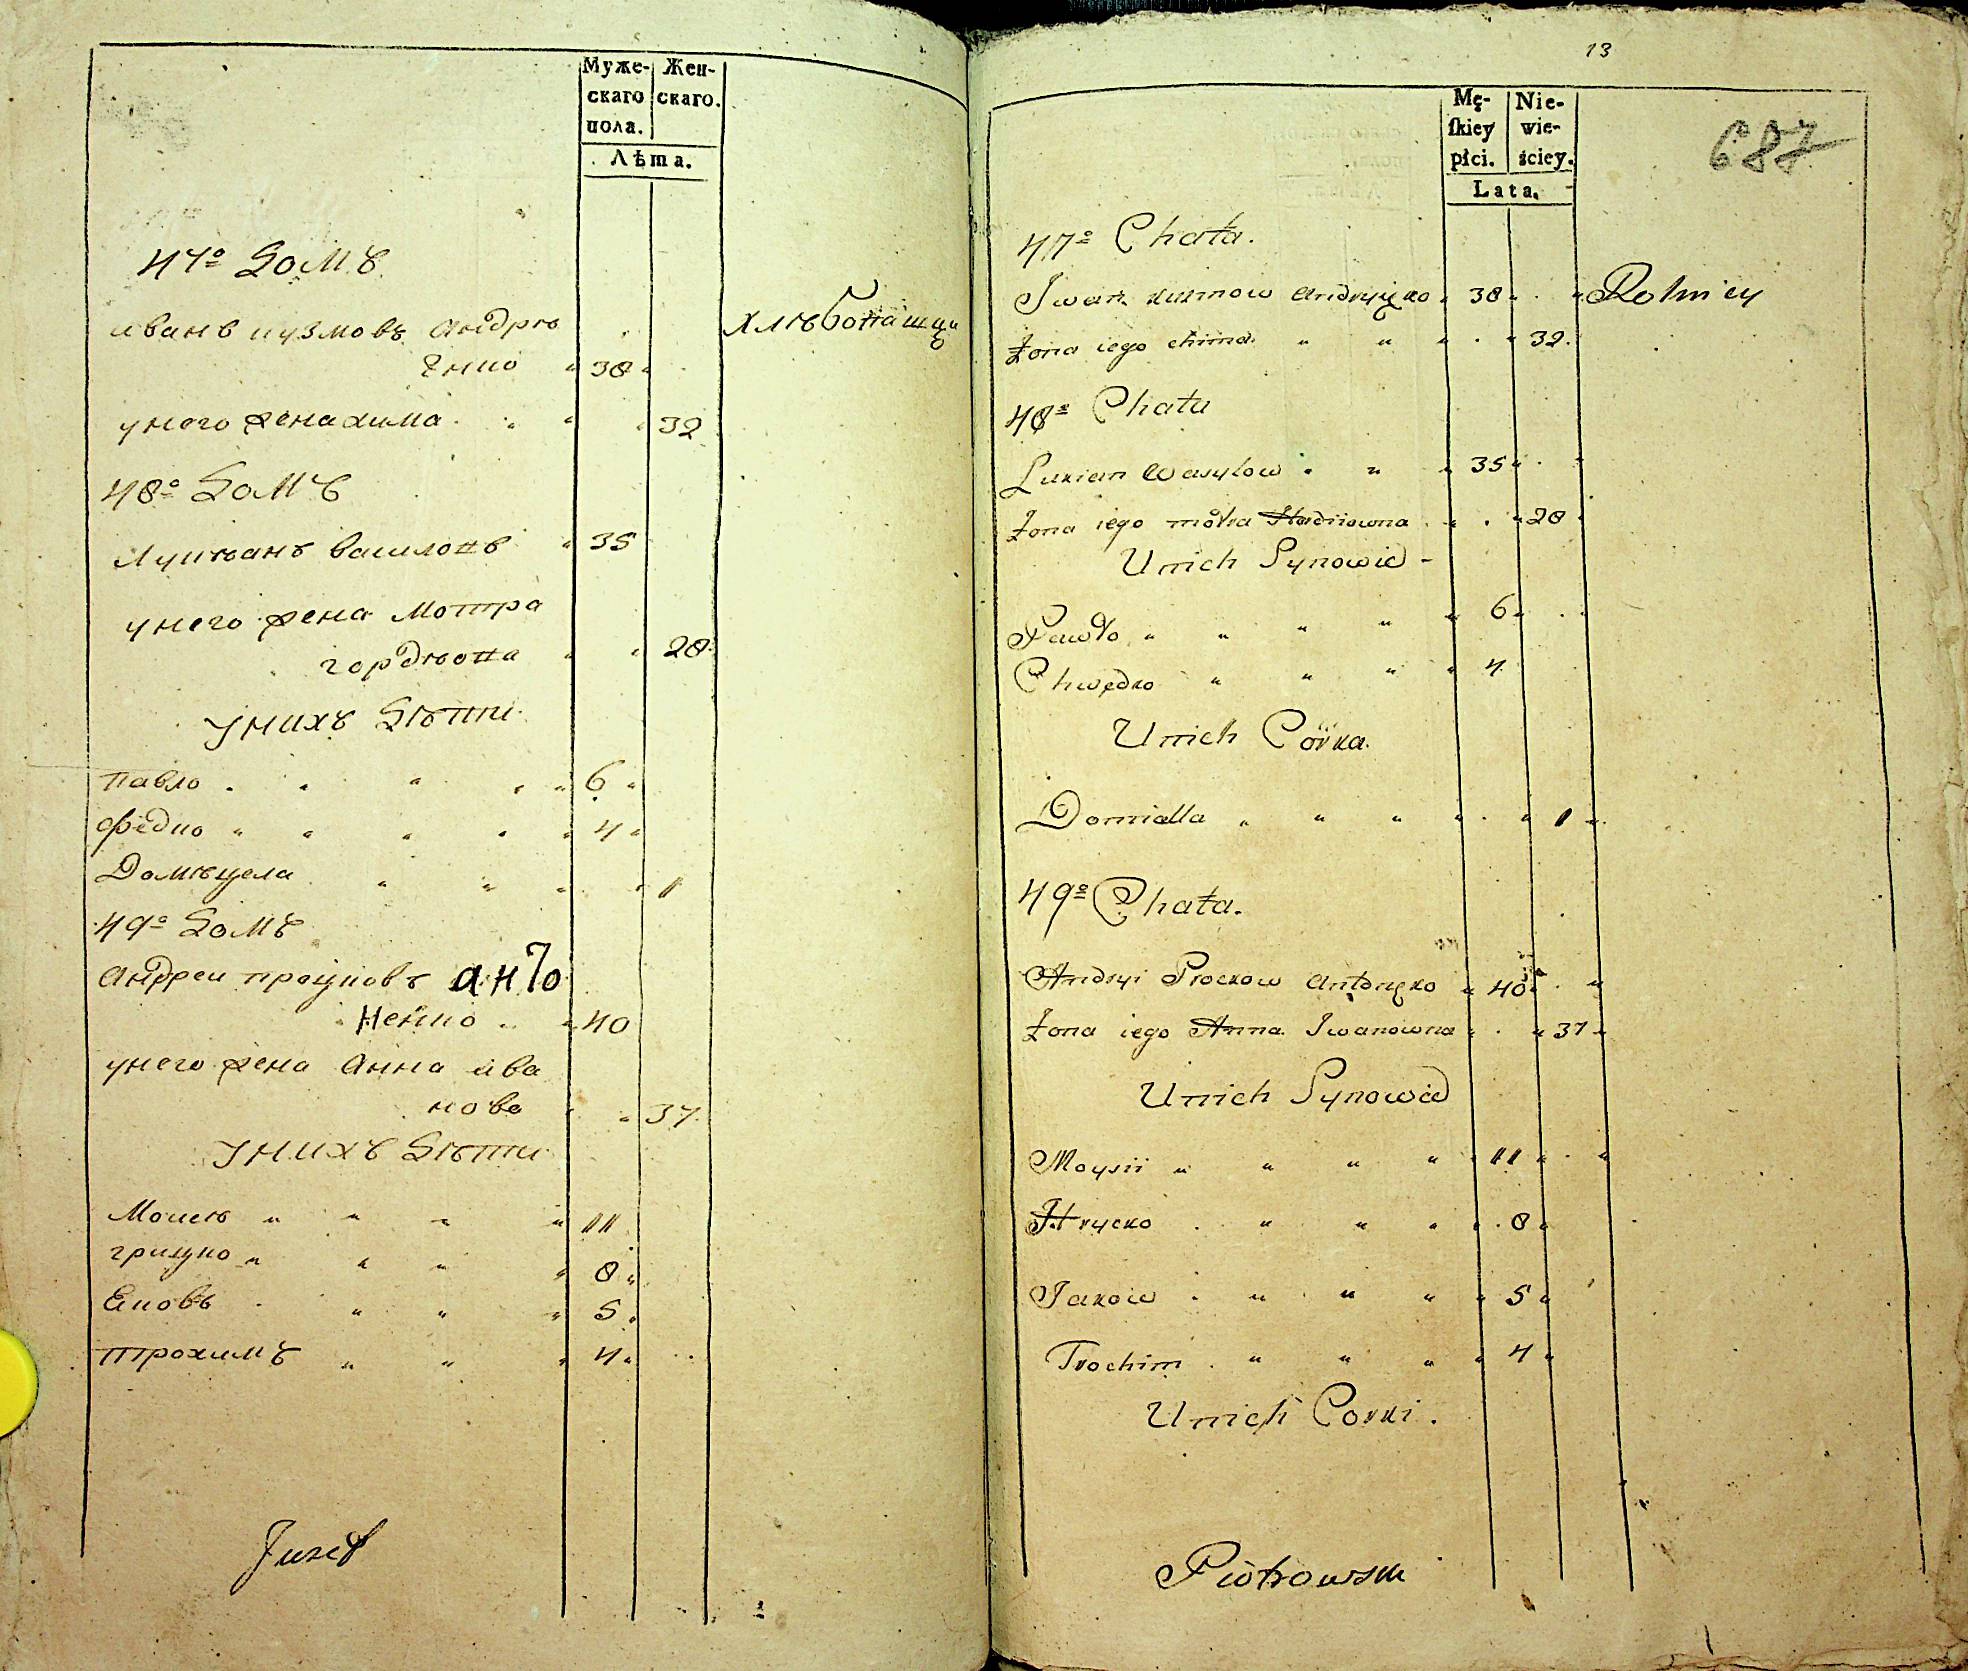 Муже-
скаго
пола.
Жен-
скаго.
Лѣта.
47º Домъ
иванъ кузмовъ андрѣ
Енко " 38 "
хлѣбопашцы
унего жена хима " " 32
48º Домъ
Лукѣанъ василовъ " 35
унего жена Мотра
гордѣова " " 28
унихъ Дѣтти
павло " " " " " 6 "
федко " " " " " 4 "
Домѣцела " " " " 1
49º Домъ
андреи процковъ анто
ненко " 40
унего жена Анна ива
нова " " 37
унихъ Дѣтти
Моисѣ " " " " 11
грицко " " " " 8 "
Яковъ " " " " 5 "
трохимъ " " " 4 "
Juzef
13
687
Mę-
ſkiey
płci.
Nie-
wie-
ściey.
Lata.
47º Chata.
Iwan kuzmow Andryięko " 38 " " Rolnicy
Żona iego chima " " " " 32
48º Chata
Lukian Wasylow " " " 35 "
Żona iego motra Hordiiowna " " " 28
Unich Synowie -
Pawło " " " " " 6 "
Chwedko " " " " 4
Unich Córka.
Domialla " " " " " 1 "
49º Chata.
Andryi Prockow Antonęko " 40 " "
Żona iego Anna Iwanowna " " 37 "
Unich Synowie
Moysii " " " " " 11 " "
Hrycko " " " " " 8 "
Jakow " " " " " 5 "
Trochim " " " " " 4 "
Unich Corki.
Piotrowski